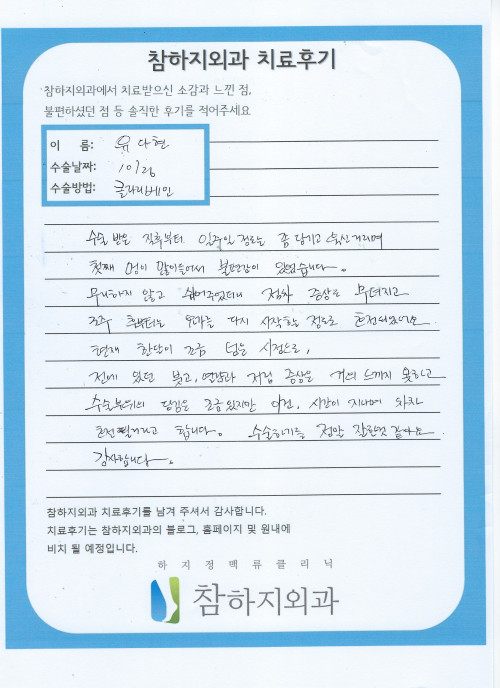 참하지외과 치료후기
참하지외과에서 치료받으신 소감과 느낀 점,
불편하셨던 점 등 솔직한 후기를 적어주세요
이 름: 유다현
수술날짜: 10/26
수술방법: 클라리베인
수술 받은 직후부터 일주일 정도는 좀 당기고 욱신거리며
첫째 멍이 많이들어서 불편감이 있었습니다.
무리하지 않고 쉬어주었더니 점차 증상은 무뎌지고
2주 후부터는 운동 다시 시작할 정도로 호전되었어요
현재 한달이 조금 넘은 시점으로,
전에 있던 붓고, 저림 증상은 거의 느끼지 못하고
수술부위의 당김은 조금 있지만 이건, 시간이 지나며 차차
호전될거라고 합니다. 수술하기를 정말 잘한것 같아요
감사합니다.
참하지외과 치료후기를 남겨 주셔서 감사합니다.
치료후기는 참하지외과의 블로그, 홈페이지 및 원내에
비치 될 예정입니다.
하지정맥류클리닉
참하지외과